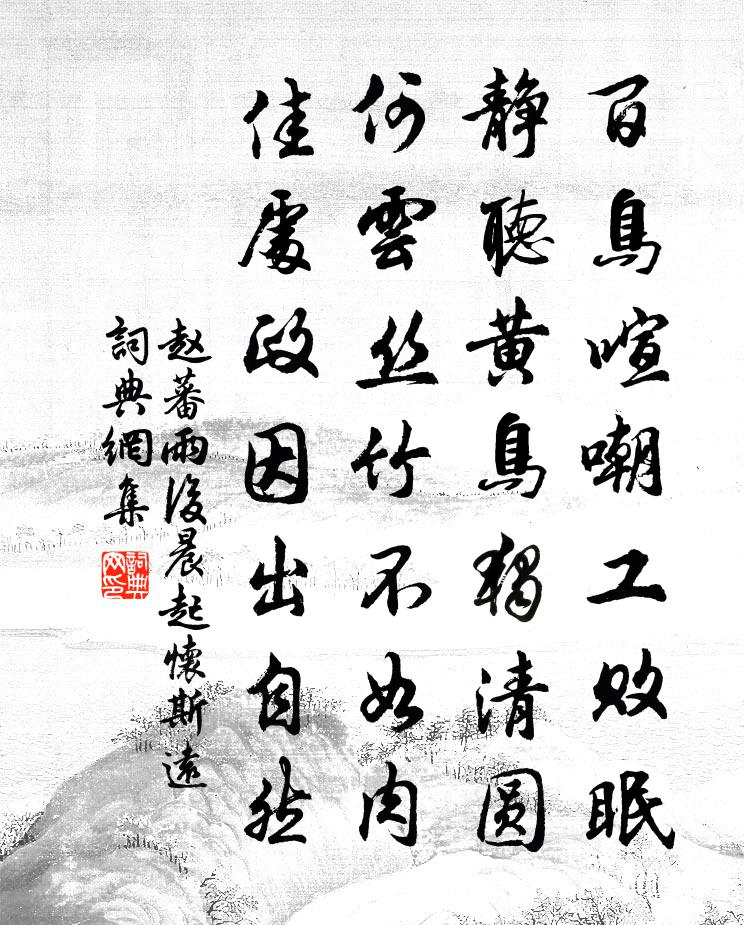 百鳥喧嘲工敗眠
静聽黄鳥獨清圓
何雲丝竹不如肉
佳處政因出自然
赵蕃雨後晨起懷斯遠
詞典網集
詞典
网印